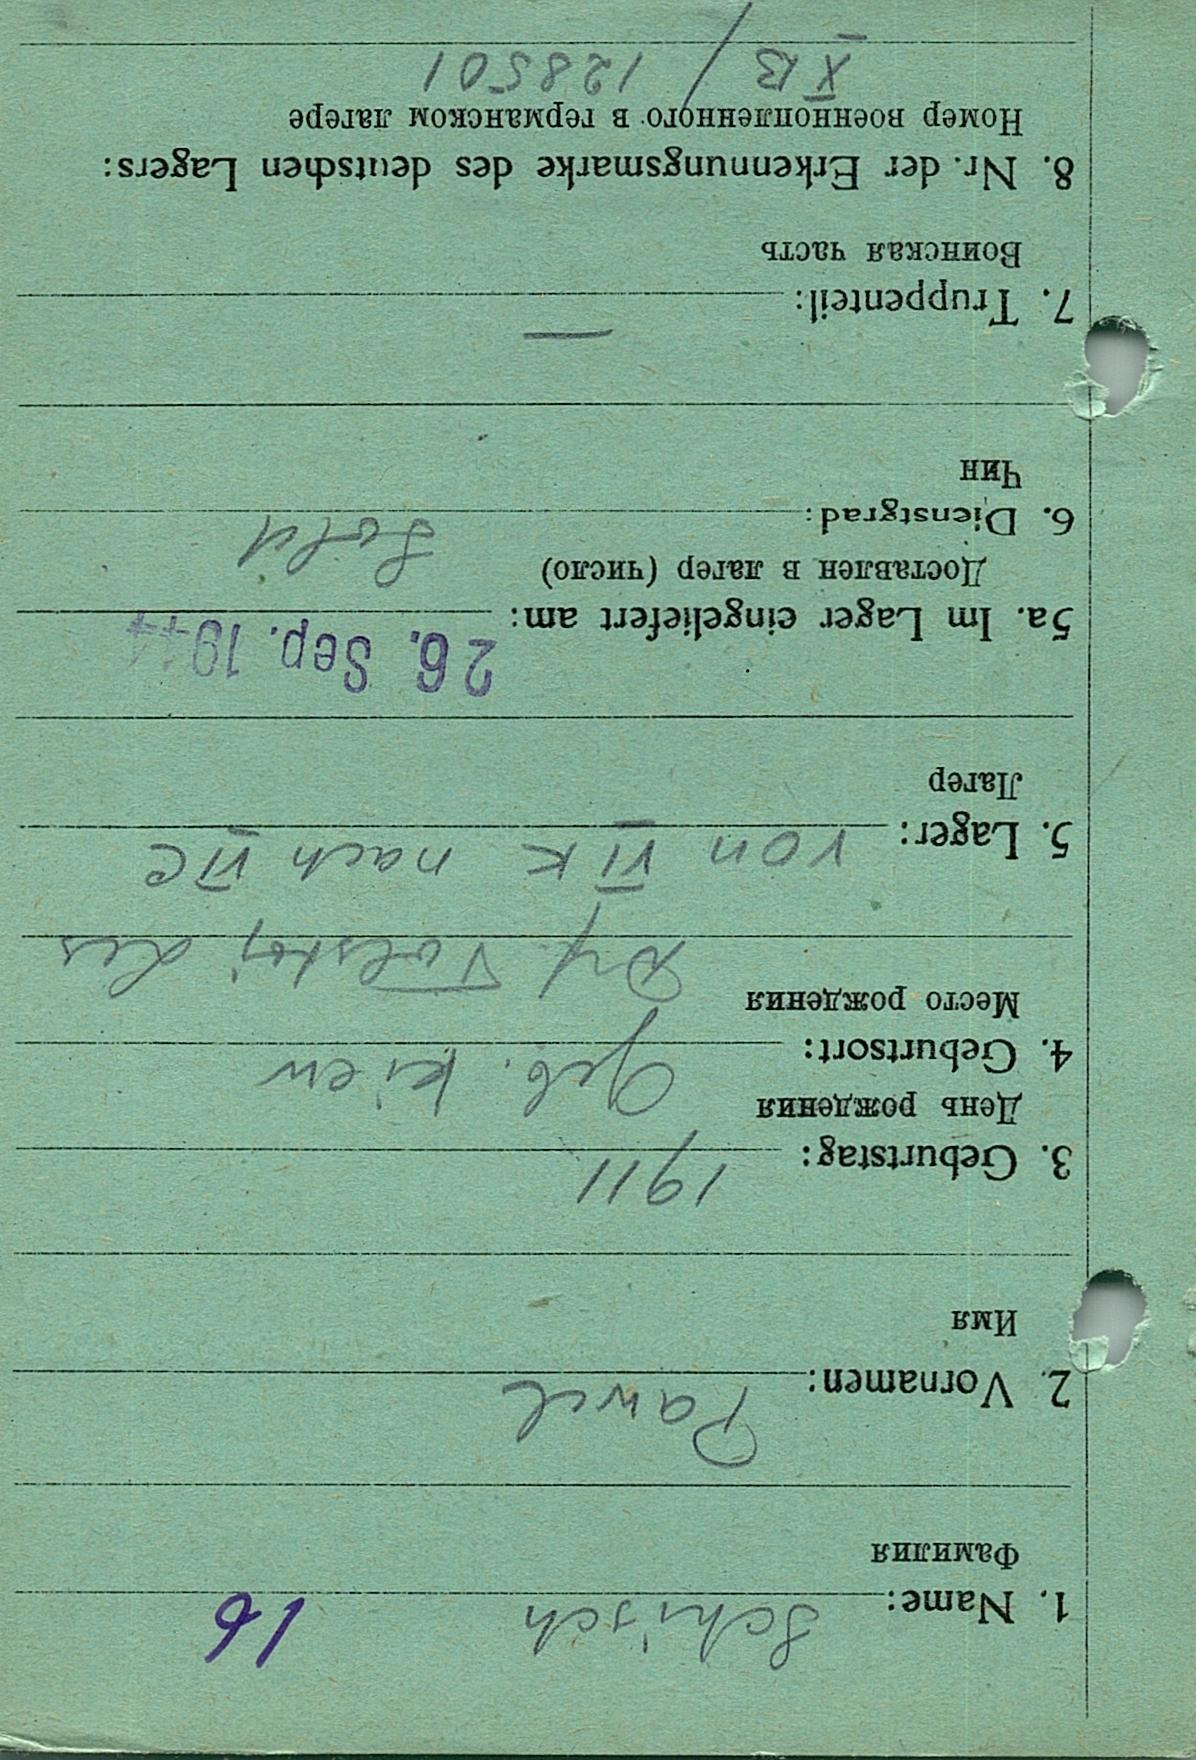 1. Name: Schisch 16
Фамилия
2. Vornamen: Pawel
Имя
3. Geburtstag: 1911
День рождения
4. Geburtsort: Geb. Kiew
Место рождения
Df. Tolstoj Les
5. Lager: von VI K nach VI C
Лагер
5a. Im Lager eingeliefert am: 26. Sep. 1944
Доставлен в лагер (число)
6. Dienstgrad: Sold
Чин
7. Truppenteil: —
Воинская часть
8. Nr. der Erkennungsmarke des deutschen Lagers:
Номер военнопленного в германском лагере
X B / 128501